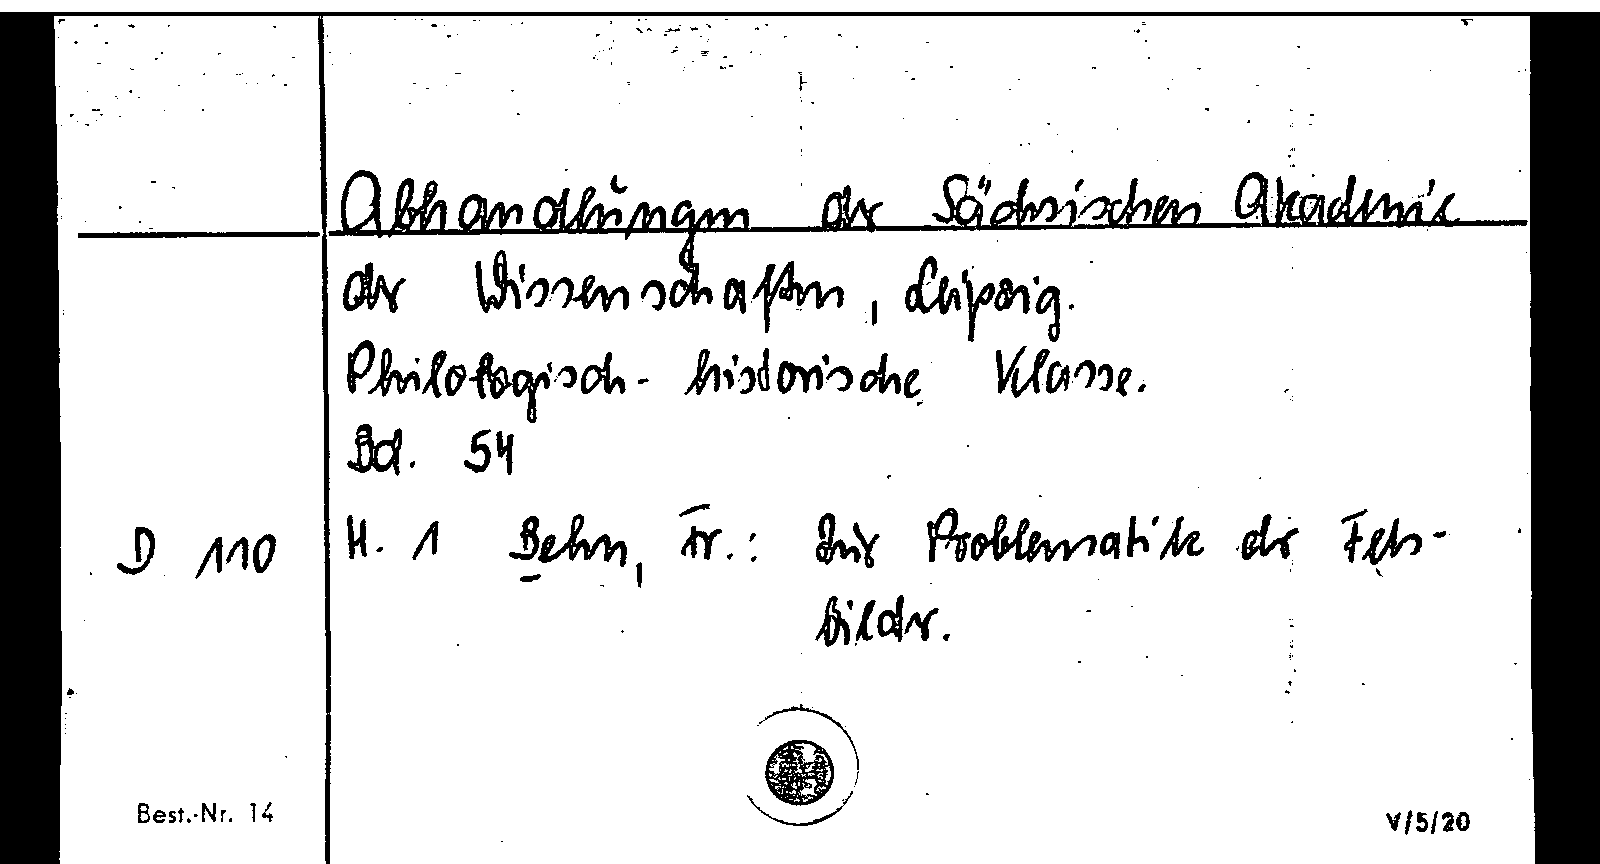 Abhandlungen der Sächsischen Akademie
der Wissenschaften, Leipzig.
Philologisch-historische Klasse.
Bd. 54
D 110 H. 1 Behn, Fr.: Zur Problematik der Fels-
bilder.
Best.-Nr. 14 V/5/20